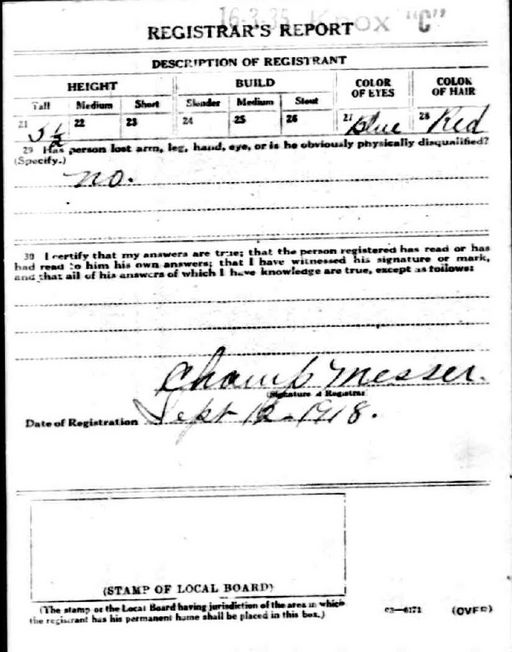 16-3-35 Knox "C"
REGISTRAR'S REPORT
DESCRIPTION OF REGISTRANT
HEIGHT BUILD COLOR OF EYES COLOR OF HAIR
Tall Medium Short Slender Medium Stout
21 5 1/2 22 23 24 25 26 27 Blue 28 Red
29 Has person lost arm, leg, hand, eye, or is he obviously physically disqualified?
(Specify.)
no.
30 I certify that my answers are true; that the person registered has read or has
had read to him his own answers; that I have witnessed his signature or mark,
and that all of his answers of which I have knowledge are true, except as follows:
Champ Messer.
(Signature of Registrar)
Date of Registration Sept 12-1918.
(STAMP OF LOCAL BOARD)
(The stamp of the Local Board having jurisdiction of the area in which
the registrant has his permanent home shall be placed in this box.)
03—6171 (OVER)